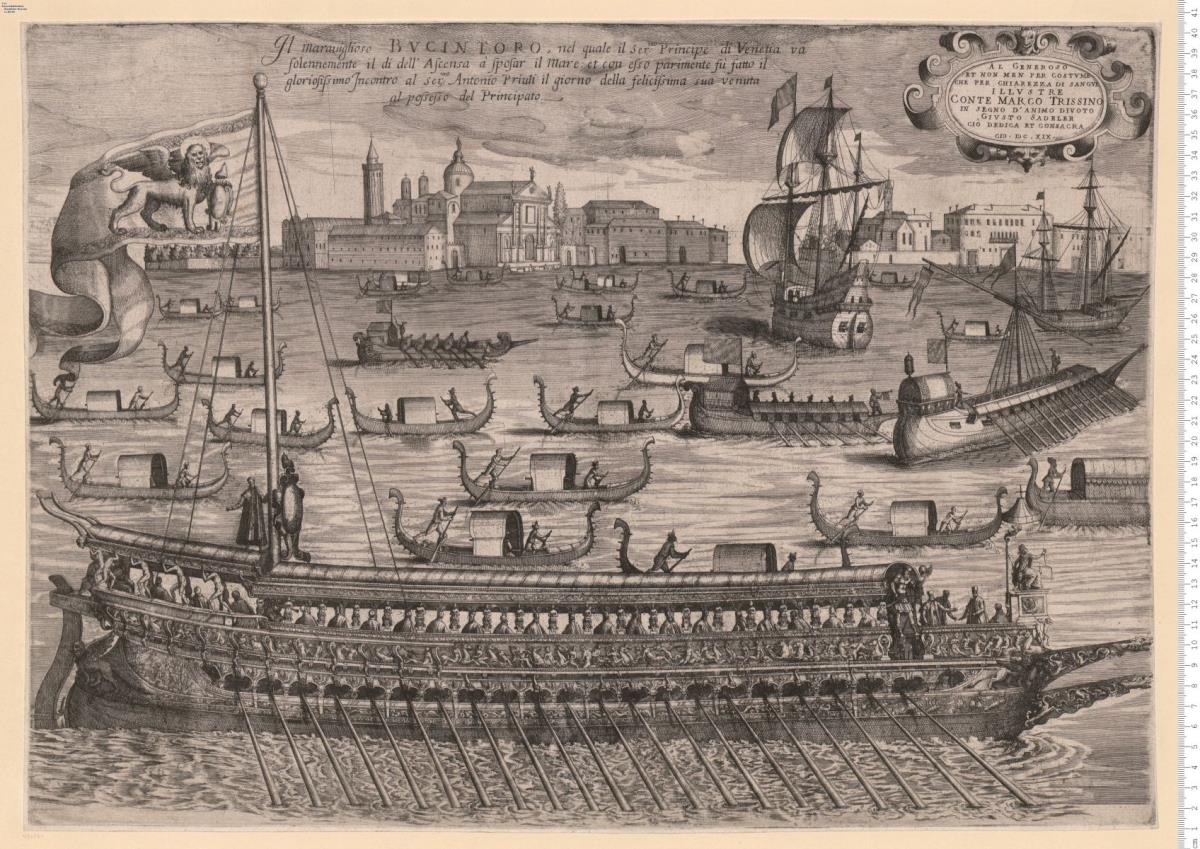 Il maraviglioso BVCINTORO, nel quale il Ser.mo Principe di Venetia va
solennemente il di dell' Ascensa a sposar il Mare: et con esso parimente fù fatto il
gloriosissimo Incontro al ser.mo Antonio Priuli il giorno della felicissima sua venuta
al possesso del Principato.
AL GENEROSO
ET NON MEN PER COSTVMI
CHE PER CHIAREZZA DI SANGVE
ILLVSTRE
CONTE MARCO TRISSINO
IN SEGNO D'ANIMO DIVOTO
GIVSTO SADELER
CIÒ DEDICA ET CONSACRA
CIƆ·IƆC·XIX
41
40
39
38
37
36
35
34
33
32
31
30
29
28
27
26
25
24
23
22
21
20
19
18
17
16
15
14
13
12
11
10
9
8
7
6
5
4
3
2
1
cm